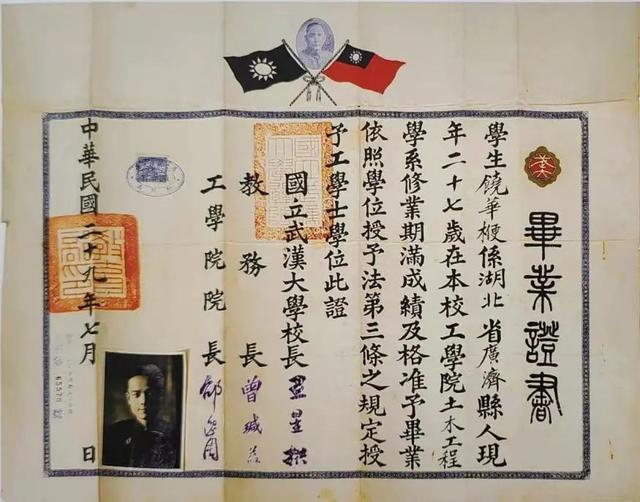 畢業證書
學生饒華梗係湖北省廣濟縣人現
年二十七歲在本校工學院土木工程
學系修業期滿成績及格准予畢業
依照學位授予法第三條之規定授
予工學士學位此證
國立武漢大學校長王星拱
教務長曾瑊益
工學院院長邵逸周
中華民國二十九年七月 日